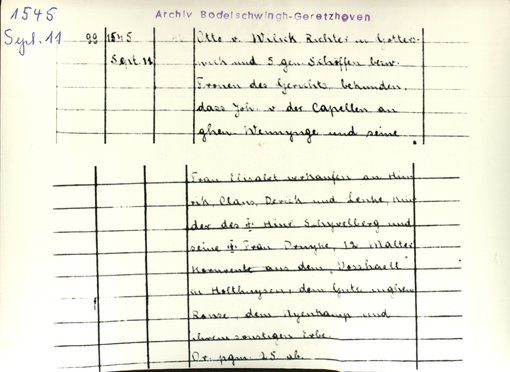 1545
Sept. 11
Archiv Bodelschwingh-Geretzhoven
99 1545
Sept. 11
Otto v. Wilrik Richter in Gotters-
wick und 5 gen. Schöffen bezw.
Fronen des Gerichts bekunden,
dass Joh. v. der Capellen an
ghen Wennynge und seine
Frau Elisabet verkaufen an Hin-
rik, Claus, Derick und Lenke, Kin-
der des Hinr. Schyvelberg und
seine Frau Druyke, 12 Malter
Kornrente aus dem "Vosshaell"
in Holthuysen, dem Gute
dem und
ihrem sonstigen Erbe.
Or. pgm. 2 S. ab.